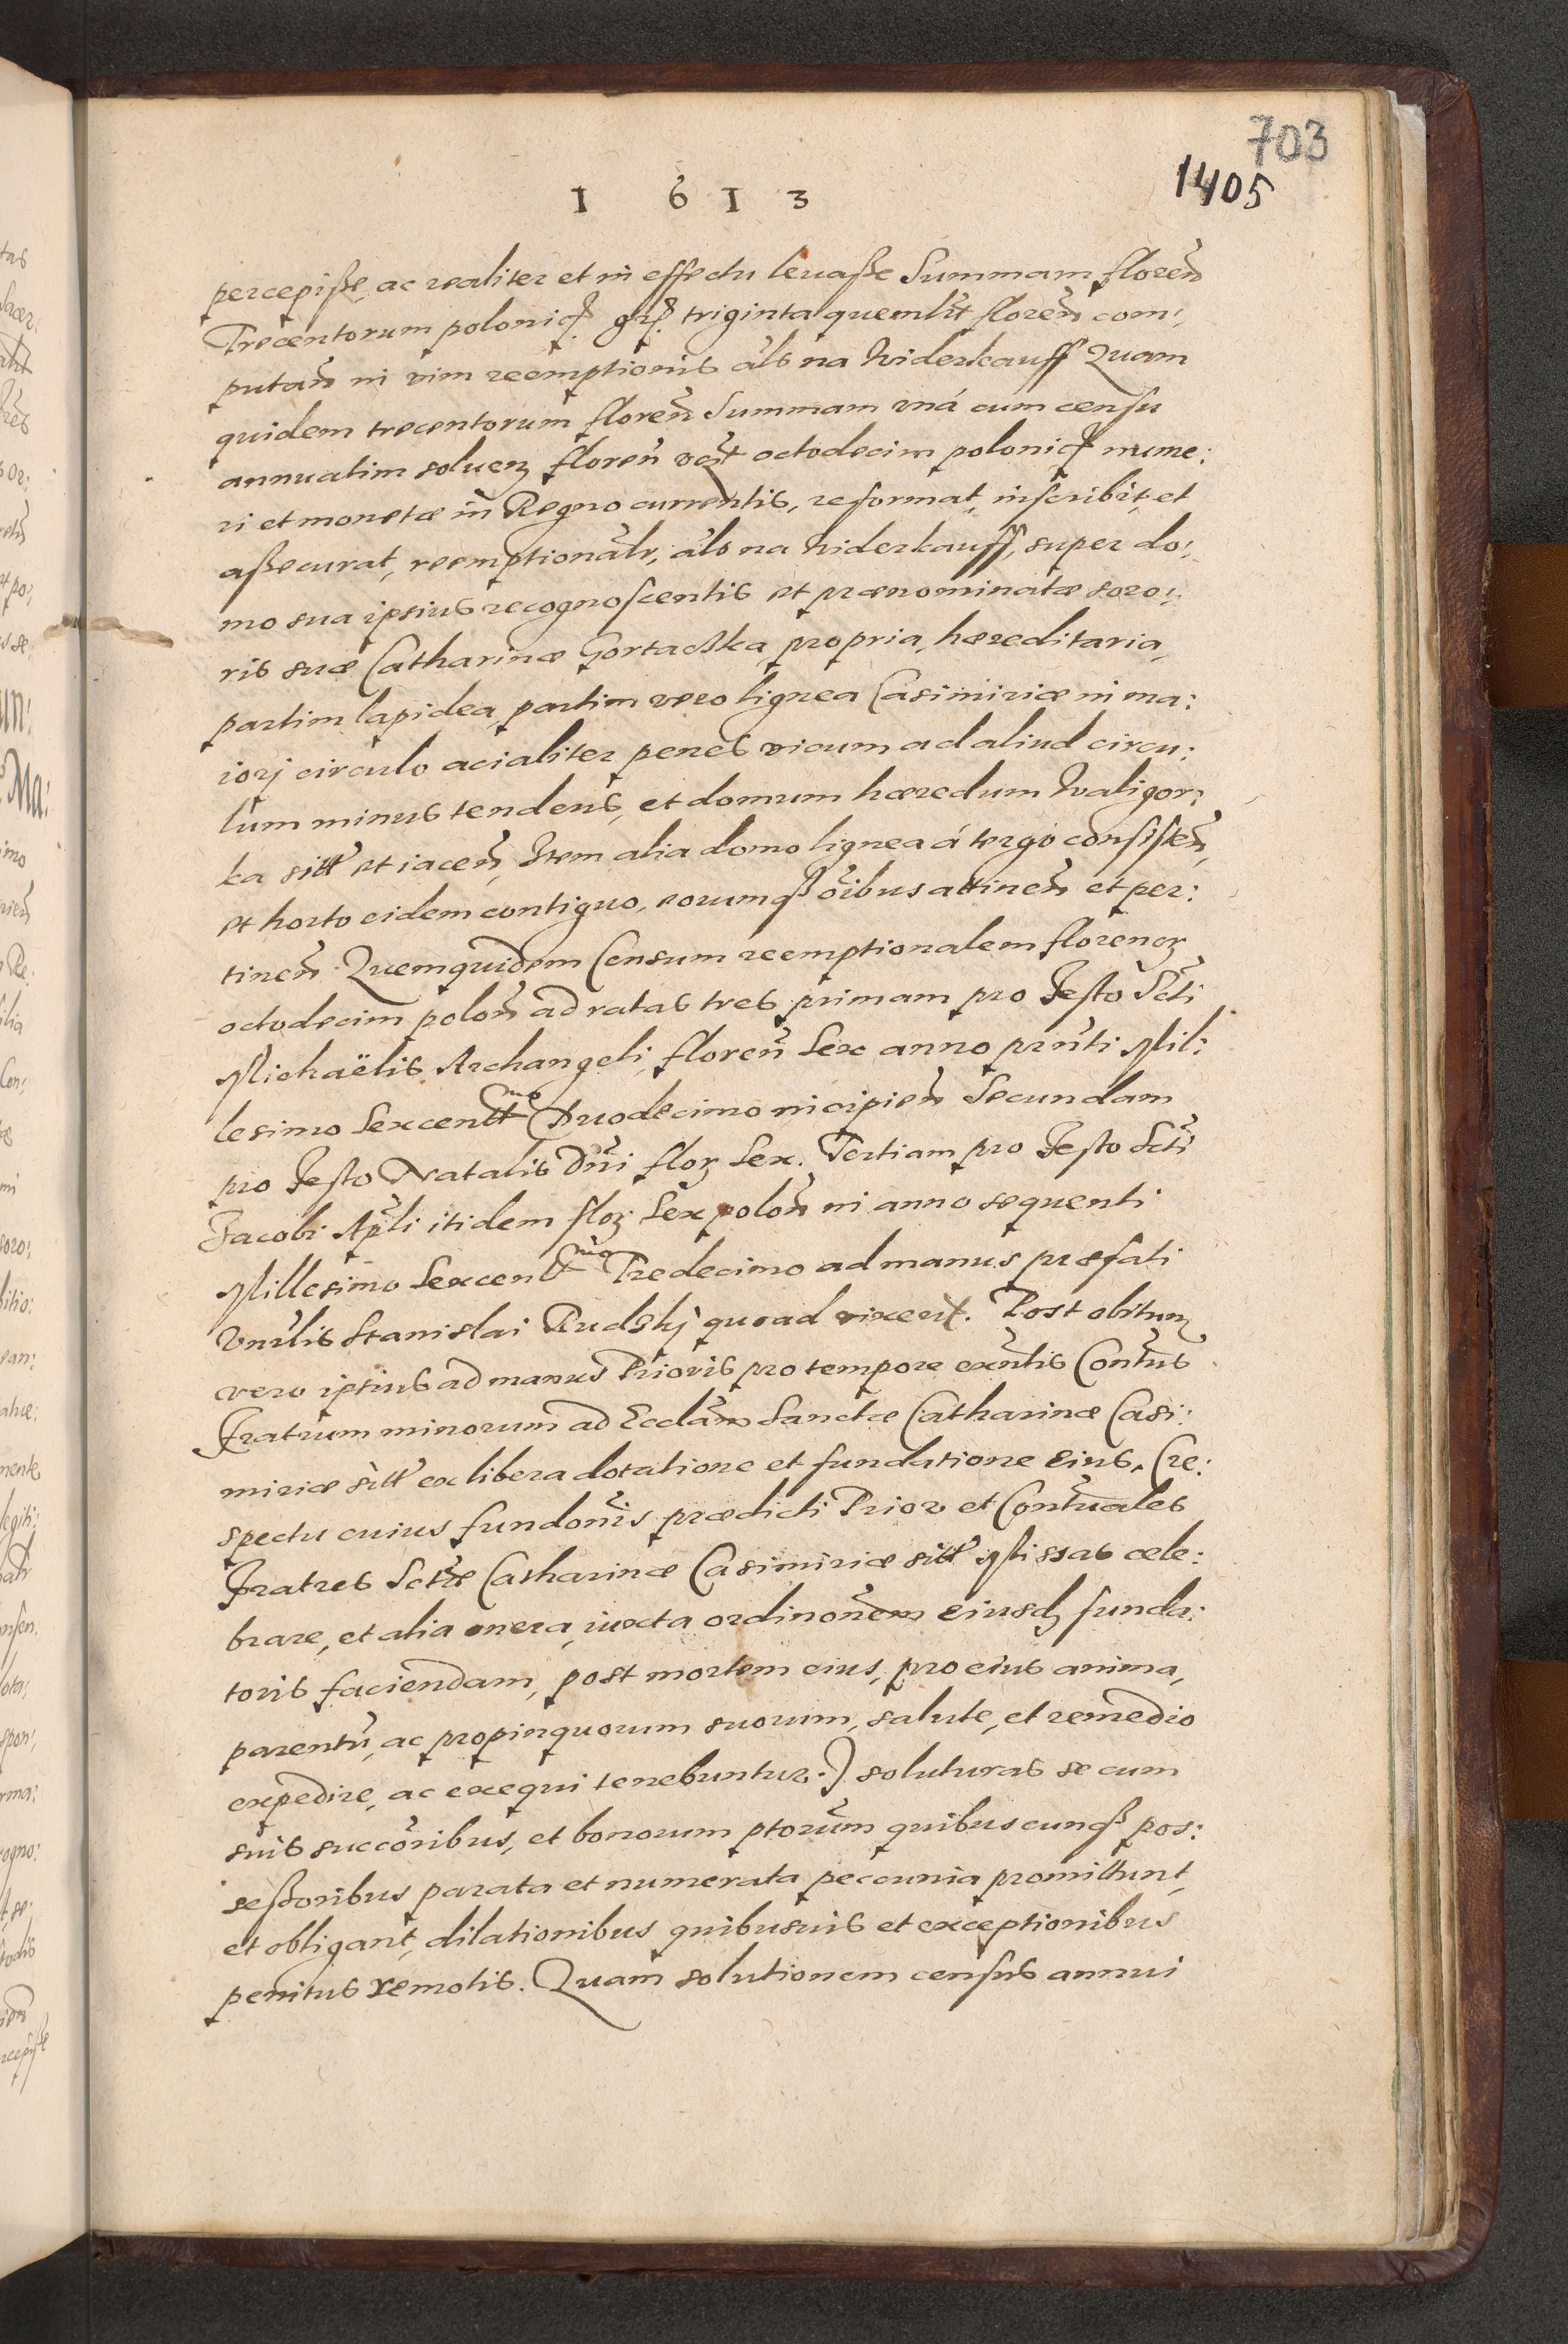 703
1405
1 6 1 3
percepiße, ac realiter et in effectu levaße Summam floreñ
Trecentorum polonic. gr. triginta quemlibt floreñ com:
putañ in vim reemptionis als na widerkauff Quam
quidem trecentorum floreñ Summam vná cum censu
annuatim soluen floreñ vcȝt octodecim polonic nume:
ri et monetæ in Regno currentis, reformat, inscribit, et
aßecurat, reemptionalr, als na widerkauff, super do:
mo sua ipsius recognoscentis et prænominatæ soro:
ris suæ Catharinæ Gortaczka, propria, hæreditaria,
partim lapidea, partim vero lignea Casimiriæ in ma:
iorj circulo acialiter penes vicum ad aliud circu:
lum minus tendens, et domum hæredum Waligor:
ka sitt et iaceñ, Item alia domo lignea á tergo consisteñ,
et horto eidem contiguo, eorumq oibus attineñ et per:
tineñ. Quemquidem Censum reemptionalem floren
octodecim poloñ ad ratas tres, primam pro Festo Scti
Michaëlis Archangeli, floreñ Sex anno prnti Mil:
lesimo Sexcentmo Duodecimo incipieñ Secundam
pro Festo Natalis Dni flor Sex. Tertiam pro Festo Scti
Jacobi Apli itidem flor Sex poloñ in anno sequenti
Millesimo Sexcentmo Tredecimo ad manus præfati
Vnrlis Stanislai Rudskj quoad vixerit. Post obitum
vero ipsius ad manus Prioris pro tempore exntis Contus
Fratrum minorum ad Ecclam Sanctæ Catharinæ Casi:
miriæ sitt ex libera dotatione et fundatione Eius. (re:
spectu cuius fundonis prædicti Prior et Contuales
Fratres Sctæ Catharinæ Casimiriæ sitt Missas cele:
brare, et alia onera, iuxta ordinonem eiusd funda:
toris faciendam, post mortem eius, pro eius anima,
parentu, ac propinquorum suorum, salute, et remedio
expedire, ac exequi tenebuntur.) soluturas se cum
suis succoribus, et bonorum ptorum quibuscunq pos:
seßoribus parata et numerata peccunia promittunt,
et obligant, dilationibus quibusuis et exceptionibus
penitus remotis. Quam solutionem census annui